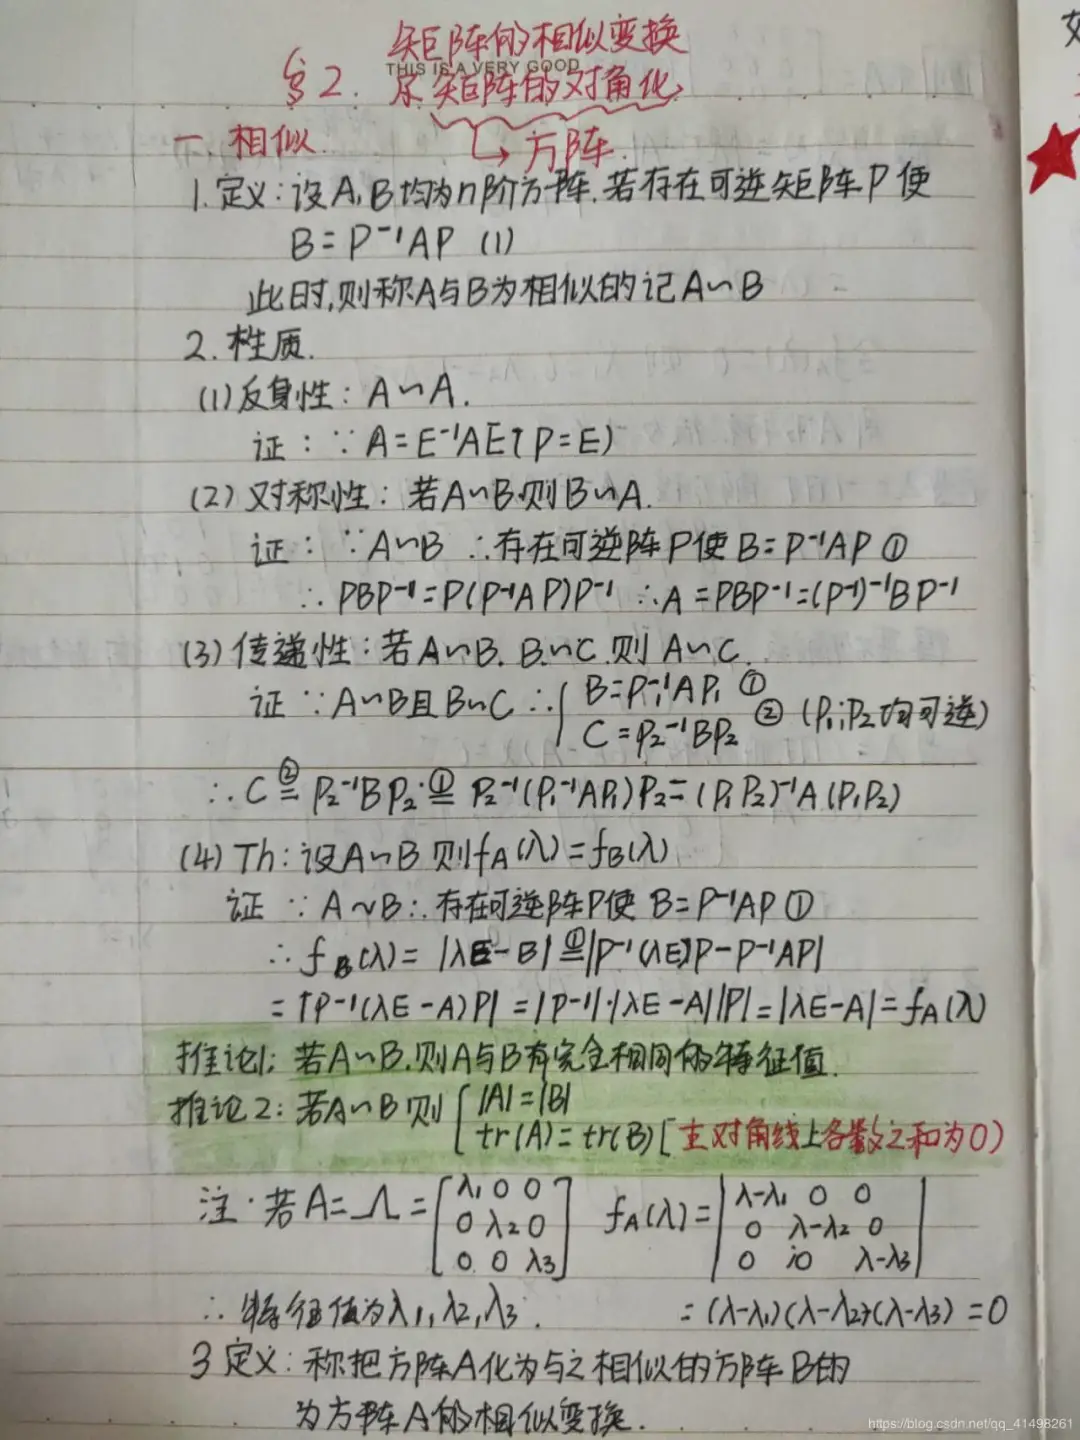 矩阵的相似变换
THIS IS A VERY GOOD
§2. 矩阵的对角化
一. 相似 → 方阵.
1. 定义: 设A, B均为n阶方阵. 若存在可逆矩阵P使
B = P⁻¹AP (1)
此时, 则称A与B为相似的记A∽B
2. 性质.
(1) 反身性: A∽A.
证: ∵ A=E⁻¹AE(P=E)
(2) 对称性: 若A∽B.则B∽A.
证: ∵A∽B ∴存在可逆阵P使 B=P⁻¹AP ①
∴ PBP⁻¹=P(P⁻¹AP)P⁻¹ ∴A=PBP⁻¹=(P⁻¹)⁻¹BP⁻¹
(3) 传递性: 若A∽B. B∽C.则 A∽C.
证 ∵A∽B且B∽C ∴{ B=P₁⁻¹AP₁ ①
C=P₂⁻¹BP₂ ② (P₁,P₂均可逆)
∴ C ②= P₂⁻¹BP₂ ①= P₂⁻¹(P₁⁻¹AP₁)P₂=(P₁P₂)⁻¹A(P₁P₂)
(4) Th: 设A∽B 则f_A(λ)=f_B(λ)
证 ∵ A∽B∴存在可逆阵P使 B=P⁻¹AP ①
∴ f_B(λ)= |λE-B| ①= |P⁻¹(λE)P-P⁻¹AP|
= |P⁻¹(λE-A)P| = |P⁻¹|·|λE-A||P|=|λE-A|=f_A(λ)
推论1: 若A∽B.则A与B有完全相同的特征值.
推论2: 若A∽B 则{ |A|=|B|
tr(A)=tr(B) [主对角线上各数之和为0)
注: 若A=Λ= [λ₁ 0 0 f_A(λ)= |λ-λ₁ 0 0
0 λ₂ 0 0 λ-λ₂ 0
0 0 λ₃] 0 0 λ-λ₃|
∴ 特征值为λ₁, λ₂, λ₃. =(λ-λ₁)(λ-λ₂)(λ-λ₃)=0
3 定义: 称把方阵A化为与之相似的方阵B的
为方阵A的相似变换.
https://blog.csdn.net/qq_41498261